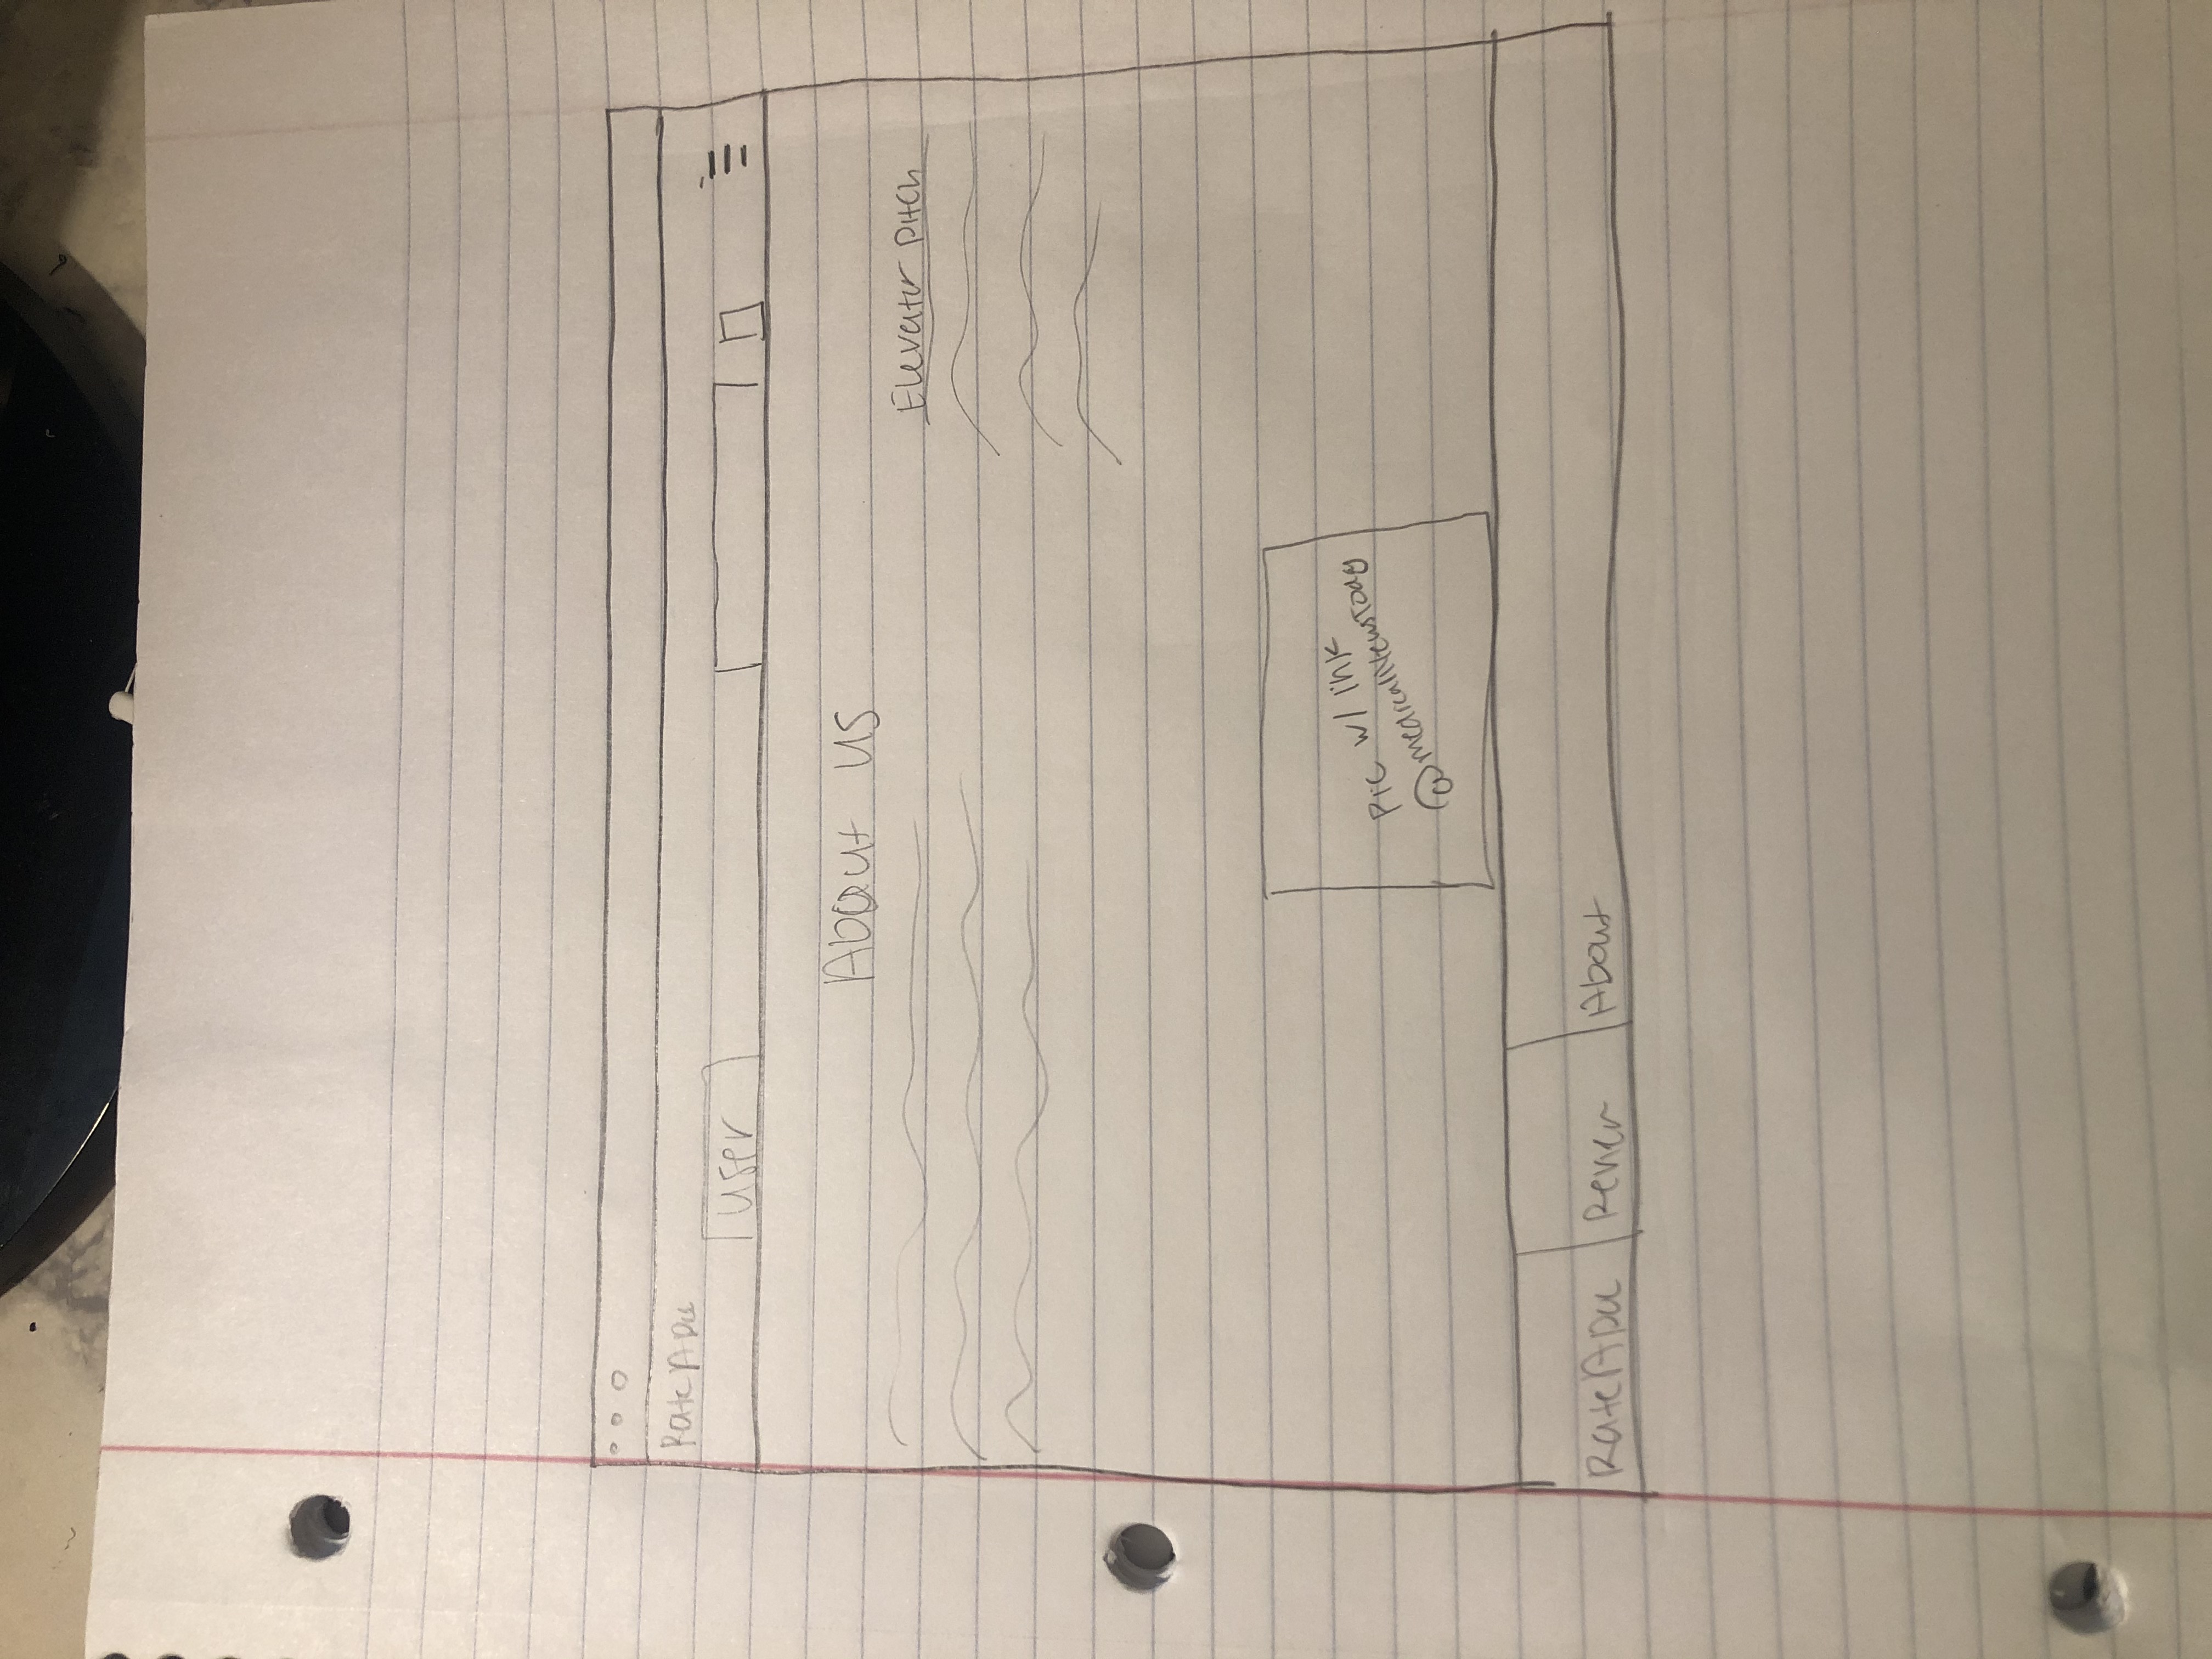 RateADoc
User
About us
Elevator Pitch
Pic w/ link
@medicalNewsToday
RateADoc
Review
About